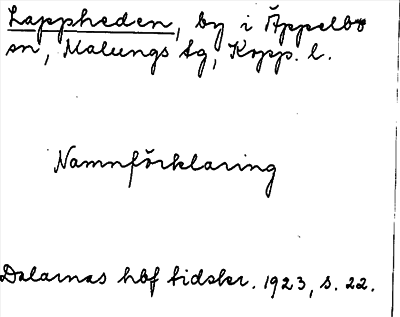 Lappheden, by i Äppelbo
sn, Malungs tg, Kopp. l.
Namnförklaring
Dalarnas hbf tidskr. 1923, s. 22.